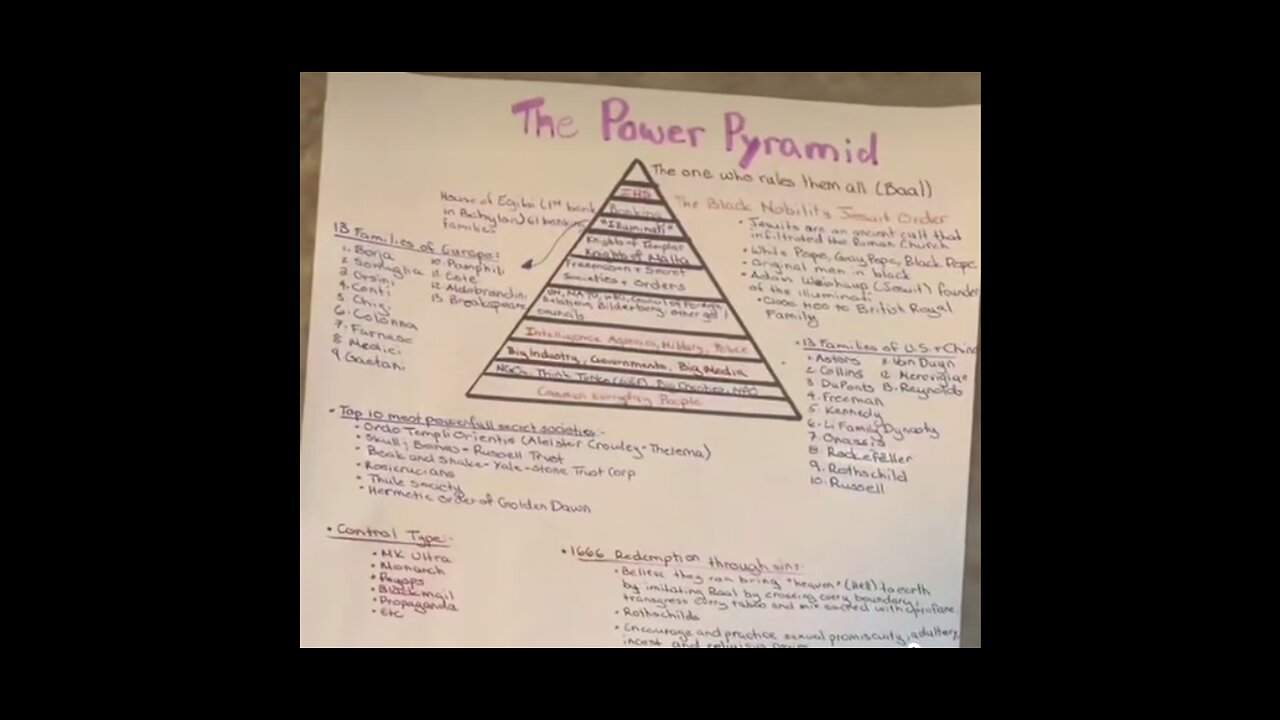 The Power Pyramid
The one who rules them all (Baal)
IHS
Banking
"Illuminati"
Knights of Templar
Knights of Malta
Freemason + Secret
Societies + orders
UN, NATO, WHO, Council of Foreign
Relations, Bilderberg, other gov't
councils
Intelligence Agencies, Military, Police
Big Industry, Governments, Big Media
NGOs, Think Tanks, Big Charities, NPO
Common everyday People
House of Egibi (1st bank
in Babylon) 61 banking
families
13 Families of Europe:
1. Borja
2. Somaglia
3. Orsini
4. Conti
5. Chigi
6. Colonna
7. Farnese
8. Medici
9. Gaetani
10. Pamphili
11. Este
12 Aldobrandini
13 Breakspeare
The Black Nobility Jesuit Order
• Jesuits are an ancient cult that
infiltrated the Roman Church
• White Pope, Gray Pope, Black Pope
• Original men in black
• Adam (Jesuit) founder
of the illuminati
• to British Royal
Family
• 13 Families of U.S. + China
1. Astors
2. Collins
3 DuPonts
4. Freeman
5. Kennedy
6. Li Family Dynasty
7. Onassis
8 Rockefeller
9. Rothschild
10. Russell
11. Van Duyn
12. Merovigian
13. Reynolds
• Top 10 most powerfull secret societies:-
• Ordo Templi Orientis (Aleister Crowley - Thelema)
• Skull; Bones - Russell Trust
• Beak and Snake - Yale - Stone Trust Corp
• Rosicrucians
• Thule Society
• Hermetic order of Golden Dawn
• Control Type:-
• MK Ultra
• Monarch
• Psyops
• Blackmail
• Propaganda
• Etc
• 1666 Redemption through sins:-
• Believe they can bring "heaven" (Hell) to earth
by imitating Baal by crossing every boundary,
transgress every taboo and mix sacred with profane
• Rothschilds
• Encourage and practice sexual promiscuity, adultery,
incest and religious